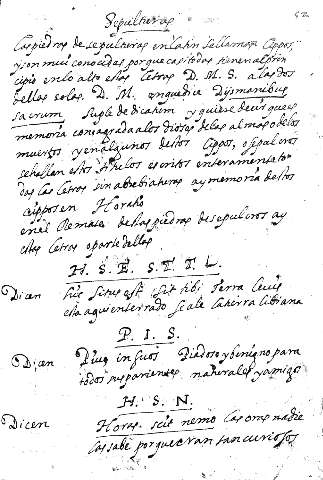 52
Sepulturas
Las piedras de sepulturas en latin se llaman Cippos,
y son mui conocidas porque casi todas tienen al prin
cipio en lo alto estas letras D. M. S. a las dos
dellas solas. D. M. en que dice Dijs manibus
sacrum suple dicatum y quiere decir que es
memoria consagrada a los dioses de las almas de los
muertos y en algunos destos Cippos, o sepulcros
se hallan estos titulos escritos enteramente to
das las letras sin abrebiaturas ay memoria destos
cippos en Horatio
en el de mas de las piedras de sepulcros ay
estas letras o parte dellas
H. S. E. S. T. T. L.
Dicen hic situs est sit tibi terra levis
esta aqui enterrado seale la tierra libiana
P. I. S.
Dicen Pius in suos Piadoso y benigno para
todos sus parientes naturales y amigos
H. S. N.
Dicen Horas scit nemo las oras nadie
las sabe porque eran tan curiosos